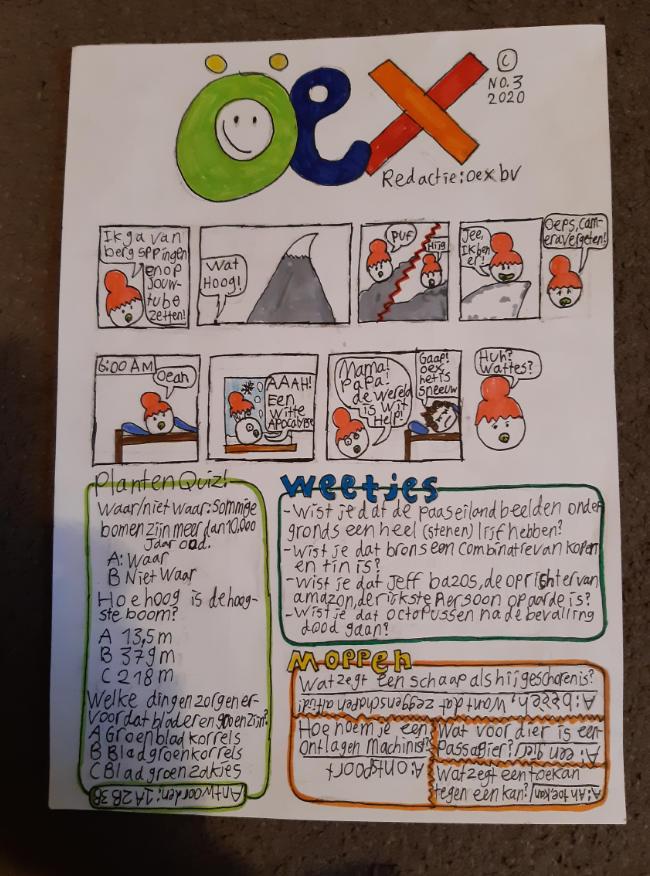 öex
©
NO.3
2020
Redactie: oex bv
Ik ga van
berg sppingen
en op
jouw-
tube
zetten!
Wat
Hoog!
Puf
Hijg
Jee,
Ik ben
er!
Oeps, cam-
era vergeten!
6:00 AM
Oeah
AAAH!
Een
witte
Apocalypse
Mama!
Papa!
de wereld
is wit
Help!
Gaap!
oex,
het is
sneeuw
Huh?
Wattes?
Planten Quiz!
Waar/niet waar: Sommige
bomen zijn meer dan 10.000
Jaar oud.
A: Waar
B Niet Waar
Hoe hoog is de hoog-
ste boom?
A 13,5 m
B 379 m
C 218 m
Welke dingen zorgen er-
voor dat bladeren groen zijn?
A Groenblad korrels
B Bladgroenkorrels
C Bladgroenzakjes
Antwoorden: 1A 2B 3B
weetjes
-Wist je dat de paaseilandbeelden onder
gronds een heel (stenen) lijf hebben?
-Wist je dat brons een combinatie van koper
en tin is?
-Wist je dat Jeff bazos, de oprichter van
amazon, de rijkste Persoon op aarde is?
-Wist je dat octopussen na de bevalling
dood gaan?
Moppen
Wat zegt een schaap als hij geschoren is?
A: bèèèh, want dat zeggen schapen altijd!
Hoe noem je een
ontslagen Machinist?
A: ontspoort
Wat voor dier is een
Passagier?
A: een gier!
Wat zegt een toekan
tegen een kan?
A: Ah toekan!